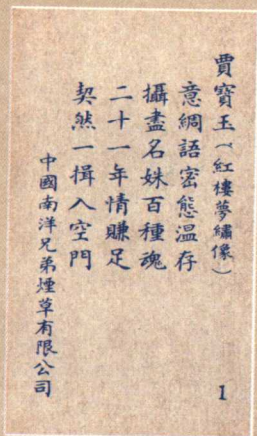 賈寶玉(紅樓夢繡像)
意綢語密態溫存
攝盡名姝百種魂
二十一年情賺足
契然一揖入空門
中國南洋兄弟煙草有限公司
1